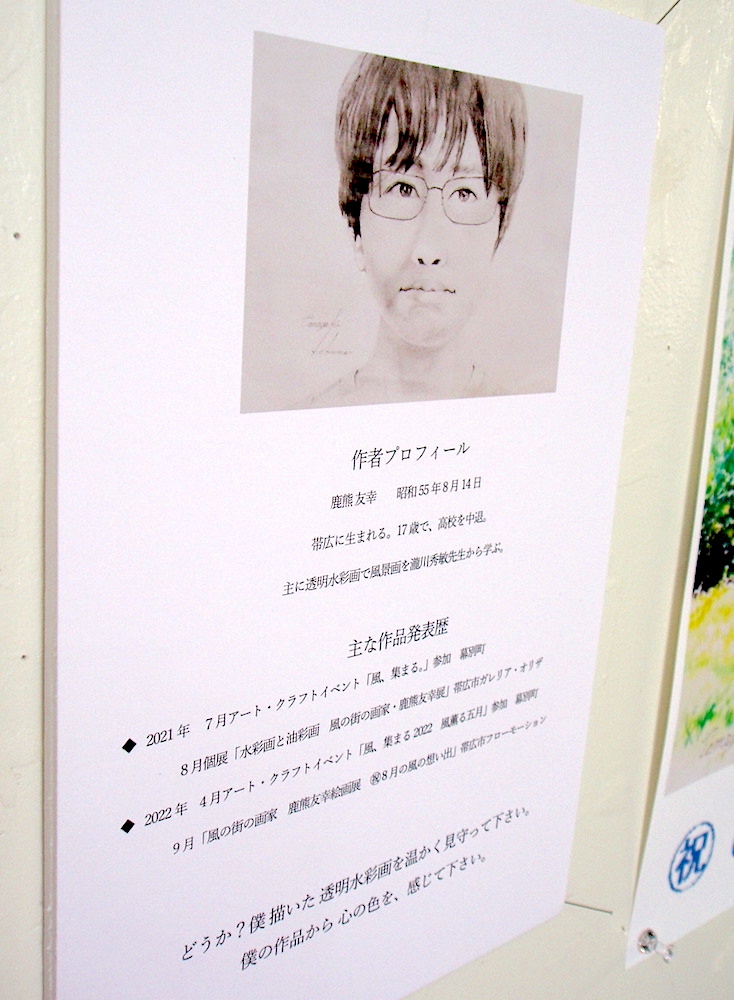 作者プロフィール
鹿熊友幸　昭和55年8月14日
帯広に生まれる。17歳で、高校を中退。
主に透明水彩画で風景画を瀧川秀敏先生から学ぶ。
主な作品発表歴
◆ 2021年　7月アート・クラフトイベント「風、集まる。」参加　幕別町
8月個展「水彩画と油彩画　風の街の画家・鹿熊友幸展」帯広市ガレリア・オリザ
◆ 2022年　4月アート・クラフトイベント「風、集まる2022　風薫る五月」参加　幕別町
9月「風の街の画家　鹿熊友幸絵画展　㊗8月の風の想い出」帯広市フローモーション
どうか？僕 描いた 透明水彩画を温かく見守って下さい。
僕の作品から 心の色を、感じて下さい。
祝